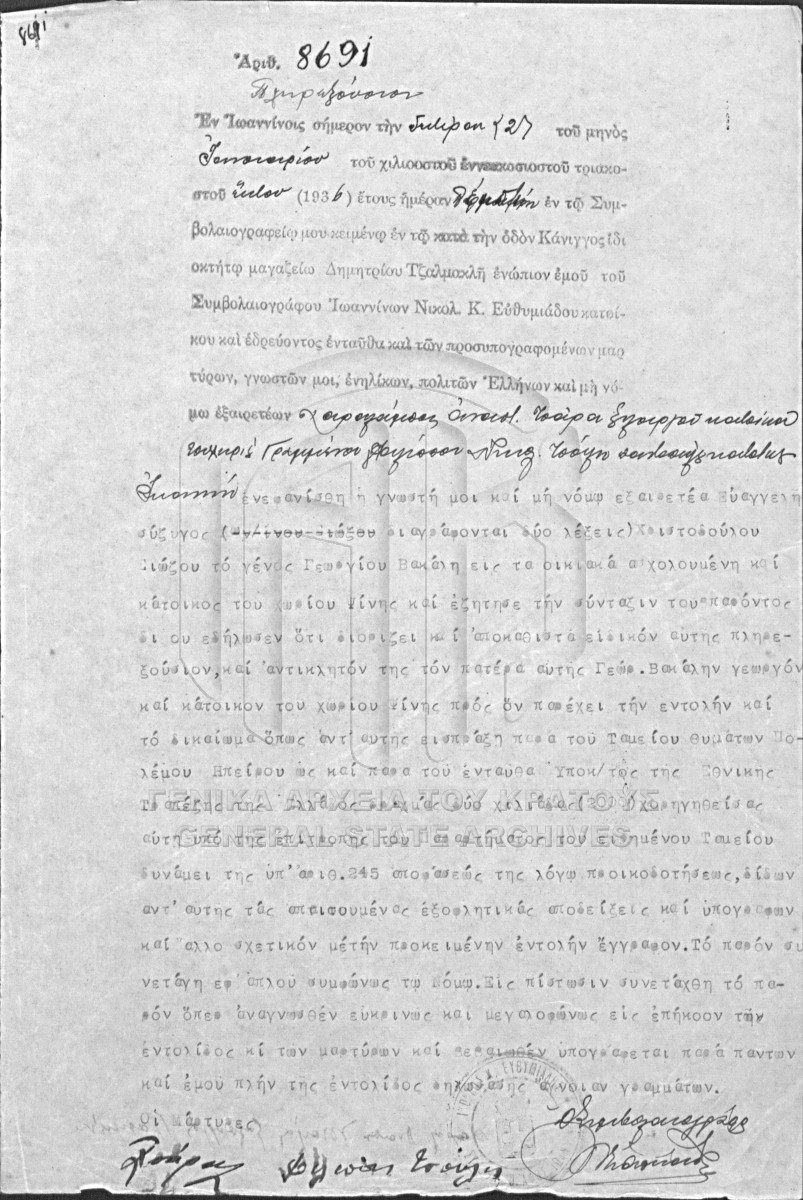 8691
Ἀριθ. 8691
Πληρεξούσιον
Ἐν Ἰωαννίνοις σήμερον τὴν δευτέραν (2) τοῦ μηνὸς
Ἰανουαρίου τοῦ χιλιοστοῦ ἐννεακοσιοστοῦ τριακο-
στοῦ ἕκτου (1936) ἔτους ἡμέραν Πέμπτην ἐν τῷ Συμ-
βολαιογραφείῳ μου κειμένῳ ἐν τῷ κατὰ τὴν ὁδὸν Κάνιγγος ἰδι
οκτήτῳ μαγαζείῳ Δημητρίου Τζαλμακλῆ ἐνώπιον ἐμοῦ τοῦ
Συμβολαιογράφου Ἰωαννίνων Νικολ. Κ. Εὐθυμιάδου κατοί-
κου καὶ ἑδρεύοντος ἐνταῦθα καὶ τῶν προσυπογραφομένων μαρ
τύρων, γνωστῶν μοι, ἐνηλίκων, πολιτῶν Ἑλλήνων καὶ μὴ νό-
μῳ ἐξαιρετέων Χαραλάμπους Ἀναστ. Τσάρα ξυλουργοῦ κατοίκου
Γραμμένου Φιλίππου Νικ.
ἐνεφανίσθη ἡ γνωστή μοι καί μή νόμῳ εξαιρετέα Εὐαγγελή
σύζυγος ( διαγράφονται δύο λέξεις)Χριστοδούλου
Σιώζου τό γένος Γεωργίου Βακάλη εις τα οικιακά ασχολουμένη καί
κάτοικος του χωρίου Ψίνης καί ἐζήτησε τήν σύνταξιν του παρόντος
δι ου εδήλωσεν ὅτι διορίζει καί ἀποκαθιστᾶ είδικόν αύτης πληρε-
ξούσιον,καί ἀντικλητόν της τόν πατέρα αυτής Γεώρ.Βακάλην γεωργόν
καί κάτοικον του χωρίου Ψίνης πρός ὅν παρέχει τήν εντολήν καί
τό δικαίωμα ὅπως ἀντ' αυτης εισπράξη παρά του Ταμείου θυμάτων Πο-
λέμου Ηπείρου ὡς καί παρα του ένταυθα Υποκ/τος της Εθνικης
Τραπέζης της Ἑλλάδος δραχμάς δύο χιλιάδας( )χορηγηθείσας
αύτη υπό της επιτροπης του Παραρτήματος του ειρημένου Ταμείου
δυνάμει της ὑπ' ἀριθ.245 αποφάσεώς της λόγω προικοδοτήσεως,δίδων
αντ' αυτης τάς απαιτουμένας εξοφλητικάς αποδείξεις καί υπογράφων
καί άλλο σχετικόν μέ τήν προκειμένην ἐντολήν ἔγγραφον.Τό παρόν συ
νετάγη εφ' ἁπλοῦ συμφώνως τῳ νόμῳ.Εἰς πίστωσιν συνετάχθη τό πα-
ρόν ὅπερ ἀναγνωσθέν εὐκρινως καί μεγαλοφώνως εἰς ἐπήκοον της
ἐντολίδος κί των μαρτύρων καί βεβαιωθέν υπογράφεται παρά παντων
καί ἐμοῦ πλήν της ἐντολίδος δηλωσάσης ἄγνοιαν γραμμάτων.
Οἱ μάρτυρες
Ὁ Συμβολαιογράφος
ΓΕΝΙΚΑ ΑΡΧΕΙΑ ΤΟΥ ΚΡΑΤΟΥΣ
GENERAL STATE ARCHIVES